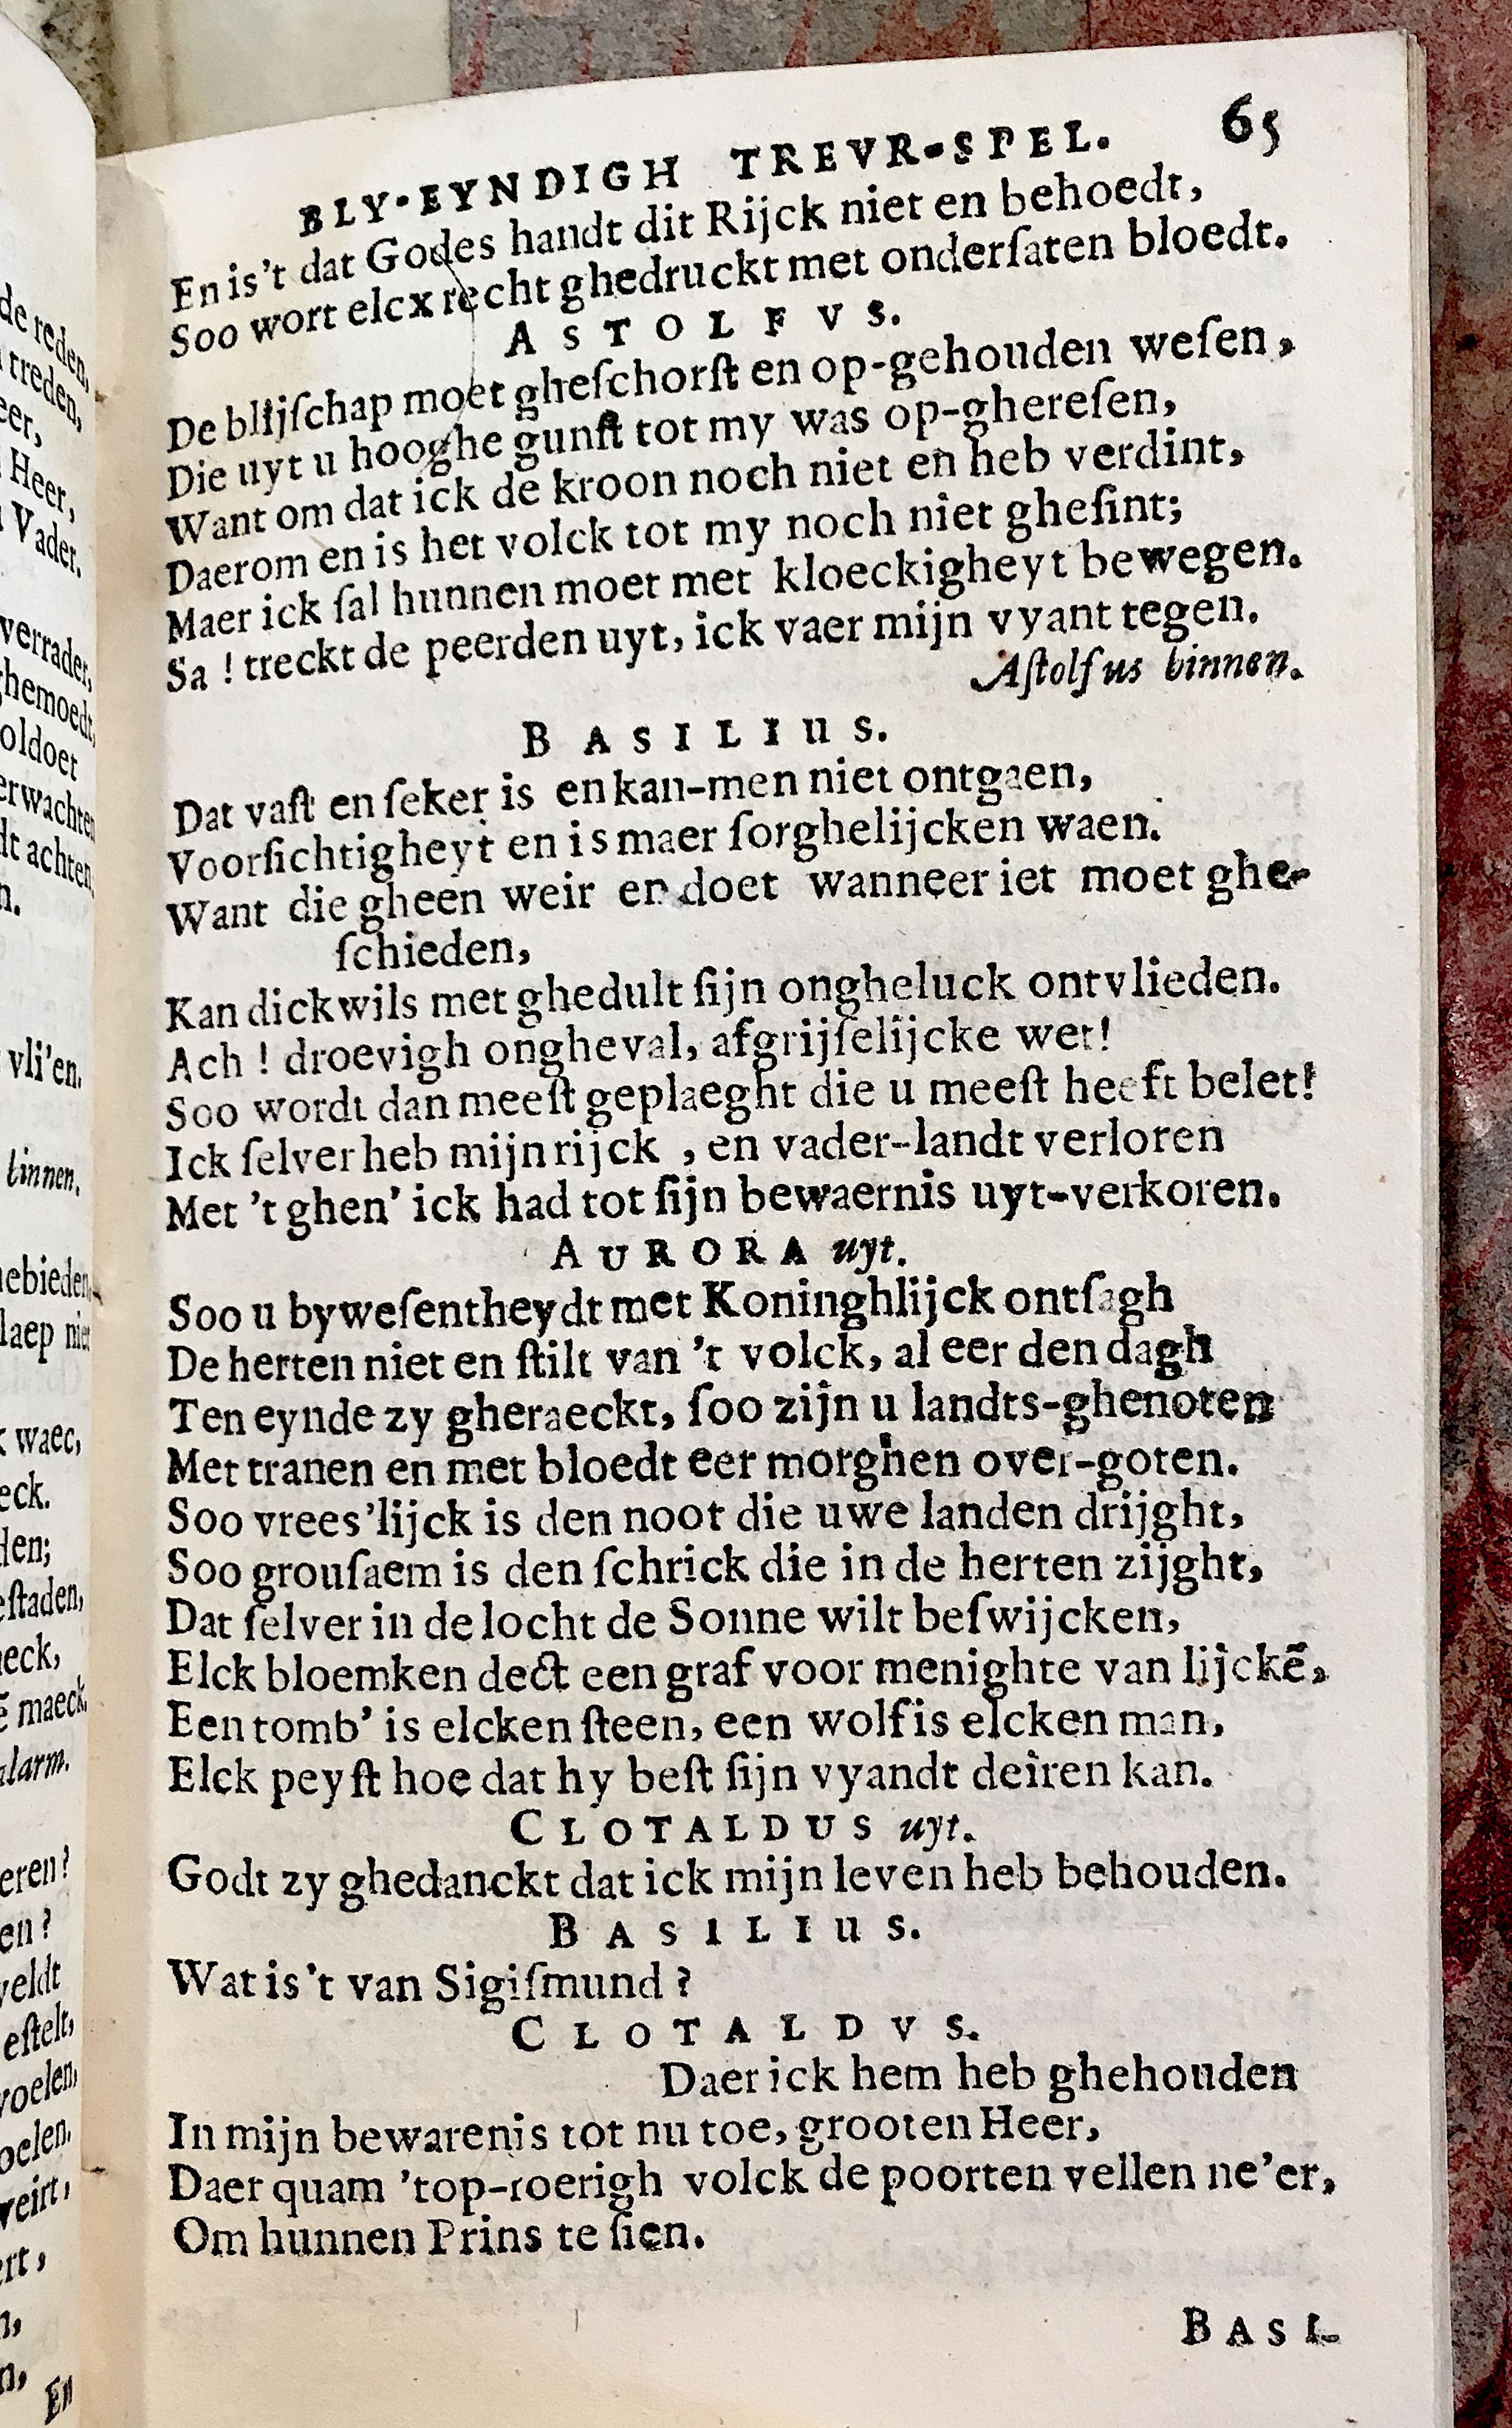 BLY-EYNDIGH TREVR-SPEL. 65
En is't dat Godes handt dit Rijck niet en behoedt,
Soo wort elcx recht ghedruckt met onderſaten bloedt.
ASTOLFVS.
De blijſchap moet gheſchorſt en op-gehouden weſen,
Die uyt u hooghe gunſt tot my was op-ghereſen,
Want om dat ick de kroon noch niet en heb verdint,
Daerom en is het volck tot my noch niet gheſint;
Maer ick ſal hunnen moet met kloeckigheyt bewegen.
Sa ! treckt de peerden uyt, ick vaer mijn vyant tegen.
Aſtolfus binnen.
BASILIUS.
Dat vaſt en ſeker is en kan-men niet ontgaen,
Voorſichtigheyt en is maer ſorghelijcken waen.
Want die gheen weir en doet wanneer iet moet ghe-
ſchieden,
Kan dickwils met ghedult ſijn ongheluck ontvlieden.
Ach ! droevigh ongheval, afgrijſelijcke wet!
Soo wordt dan meeſt geplaeght die u meeſt heeft belet!
Ick ſelver heb mijn rijck , en vader-landt verloren
Met 't ghen' ick had tot ſijn bewaernis uyt-verkoren.
AURORA uyt.
Soo u byweſentheydt met Koninghlijck ontſagh
De herten niet en ſtilt van 't volck, al eer den dagh
Ten eynde zy gheraeckt, ſoo zijn u landts-ghenoten
Met tranen en met bloedt eer morghen over-goten.
Soo vrees'lijck is den noot die uwe landen drijght,
Soo grouſaem is den ſchrick die in de herten zijght,
Dat ſelver in de locht de Sonne wilt beſwijcken,
Elck bloemken dect een graf voor menighte van lijckē,
Een tomb' is elcken ſteen, een wolf is elcken man,
Elck peyſt hoe dat hy beſt ſijn vyandt deiren kan.
CLOTALDUS uyt.
Godt zy ghedanckt dat ick mijn leven heb behouden.
BASILIUS.
Wat is't van Sigiſmund ?
CLOTALDVS.
Daer ick hem heb ghehouden
In mijn bewarenis tot nu toe, grooten Heer,
Daer quam 'top-roerigh volck de poorten vellen ne'er,
Om hunnen Prins te ſien.
BASI-